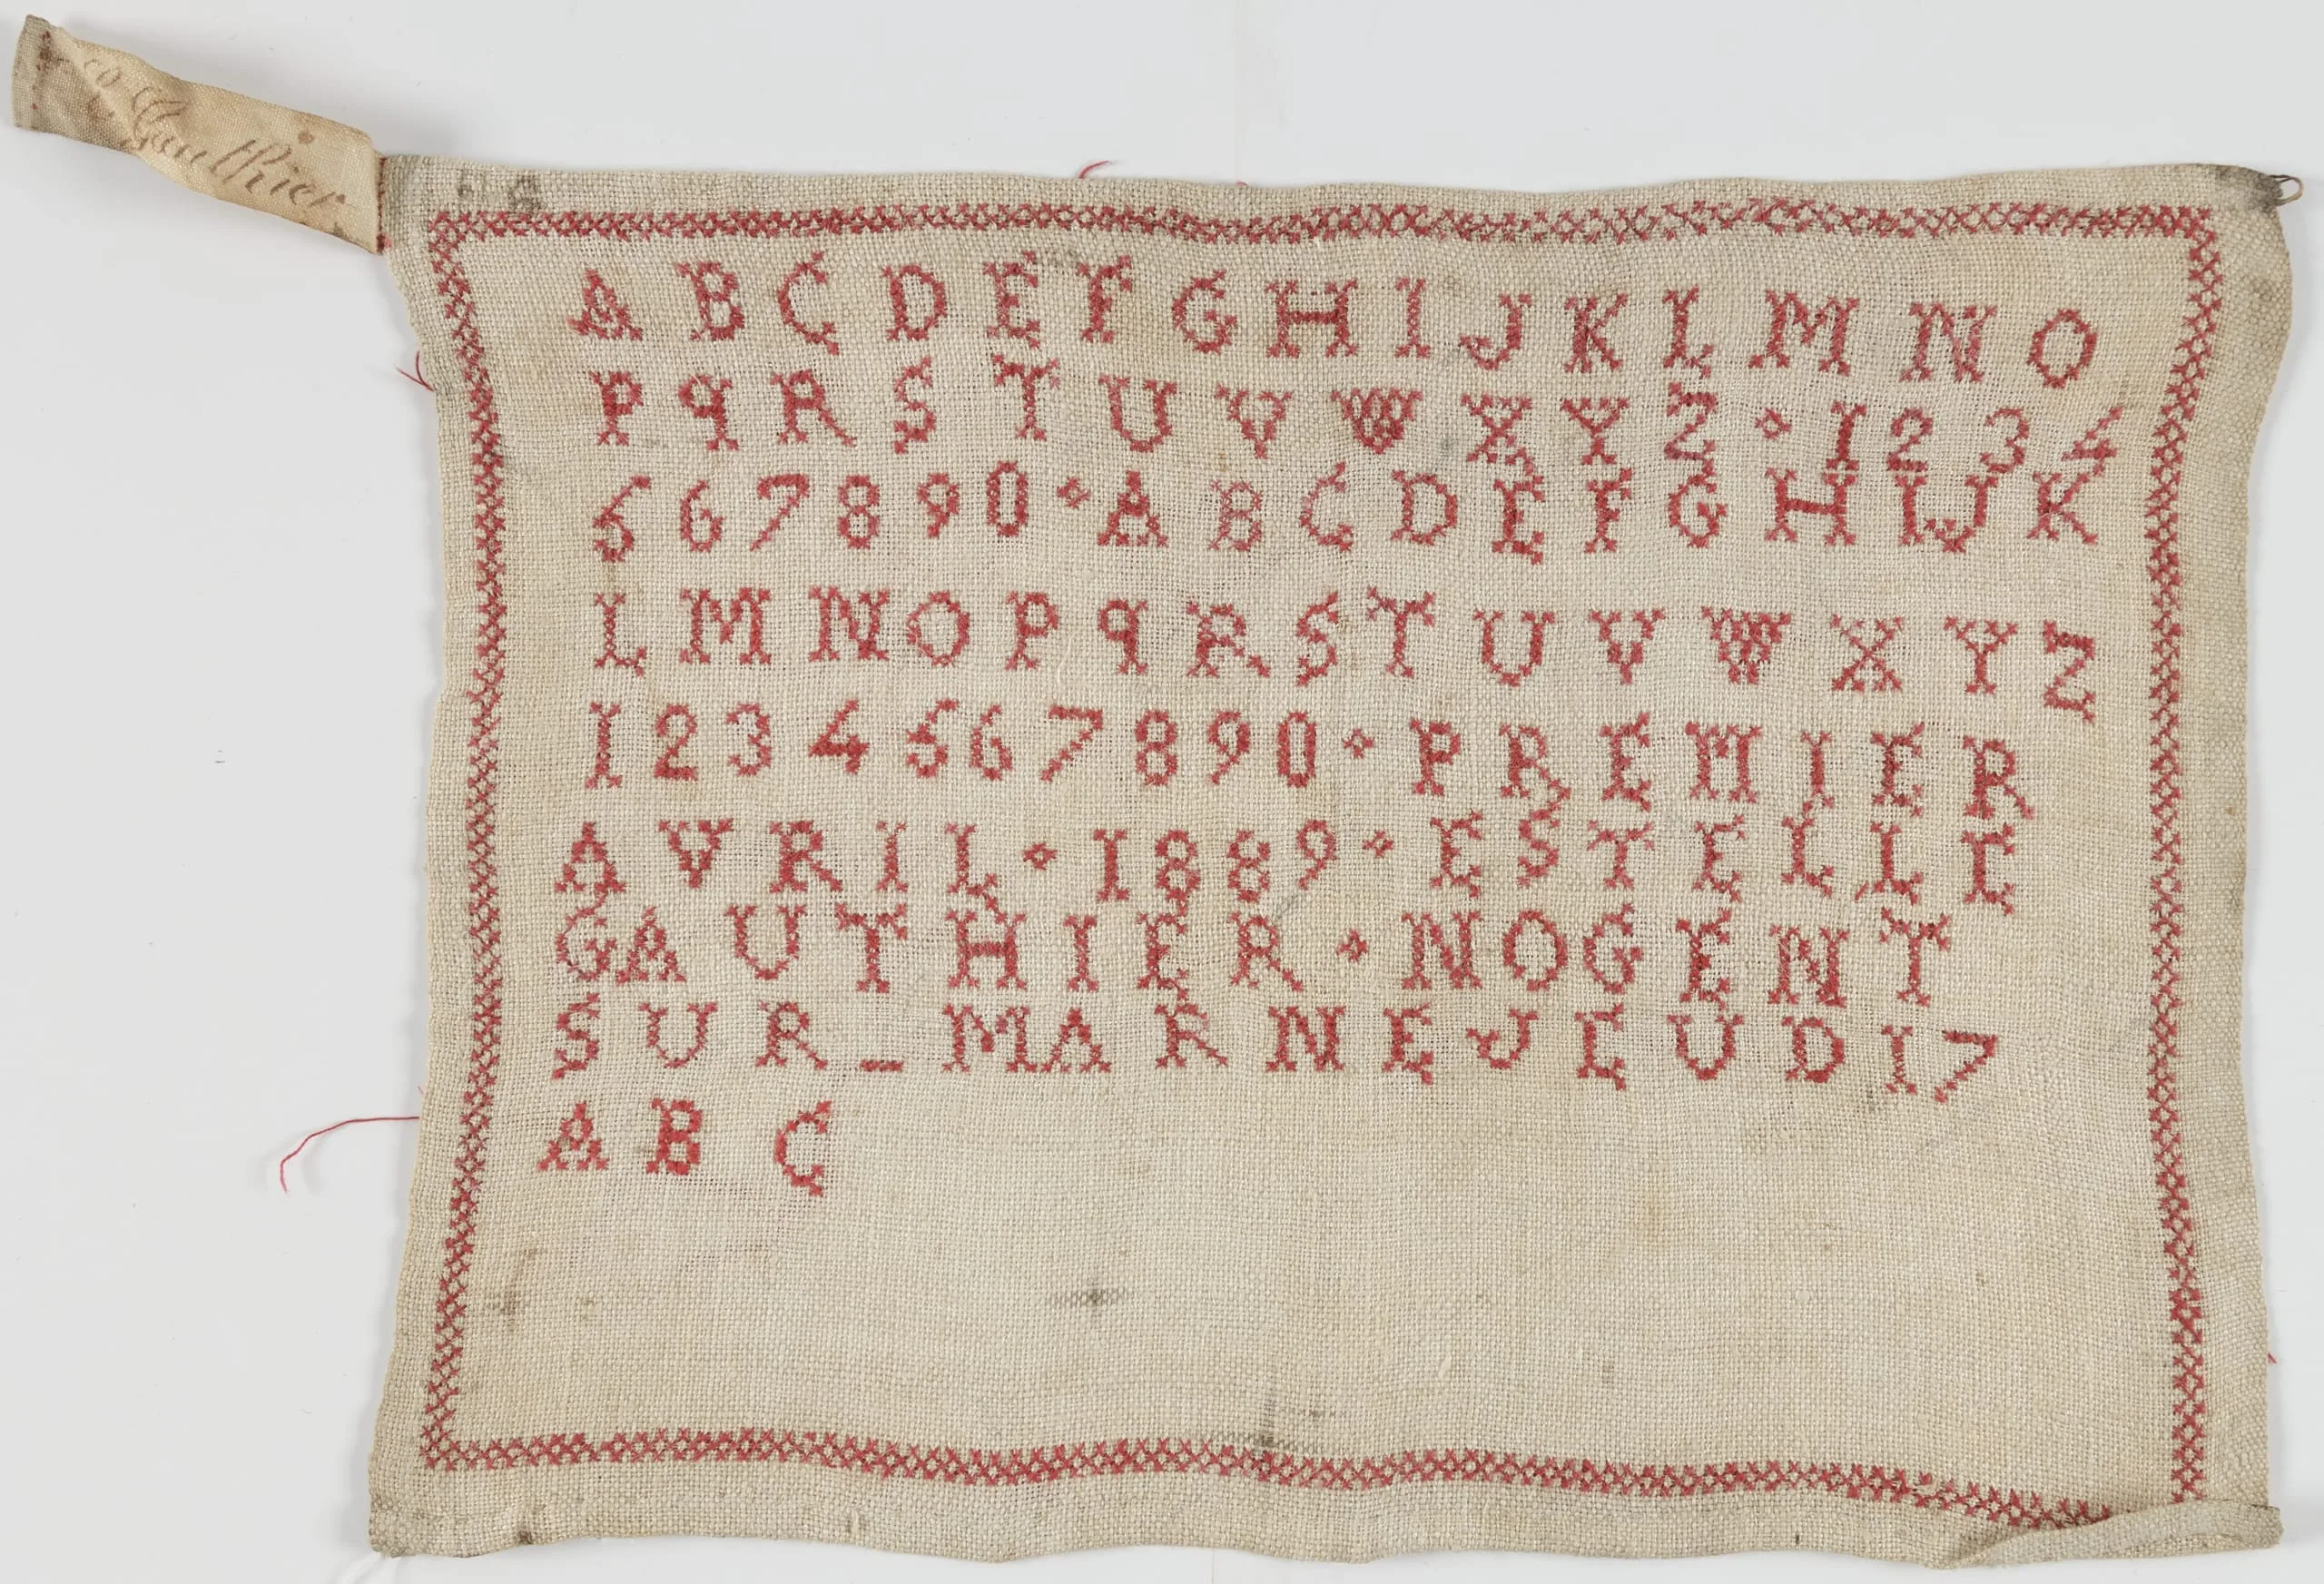 Gauthier
A B C D E F G H I J K L M N O
P q R S T U V W X Y Z 1 2 3 4
5 6 7 8 9 0 A B C D E F G H I J K
L M N O P q R S T U V W X Y Z
1 2 3 4 5 6 7 8 9 0 PREMIER
AVRIL 1889 ESTELLE
GAUTHIER NOGENT
SUR_MARNE JEUDI 17
A B C